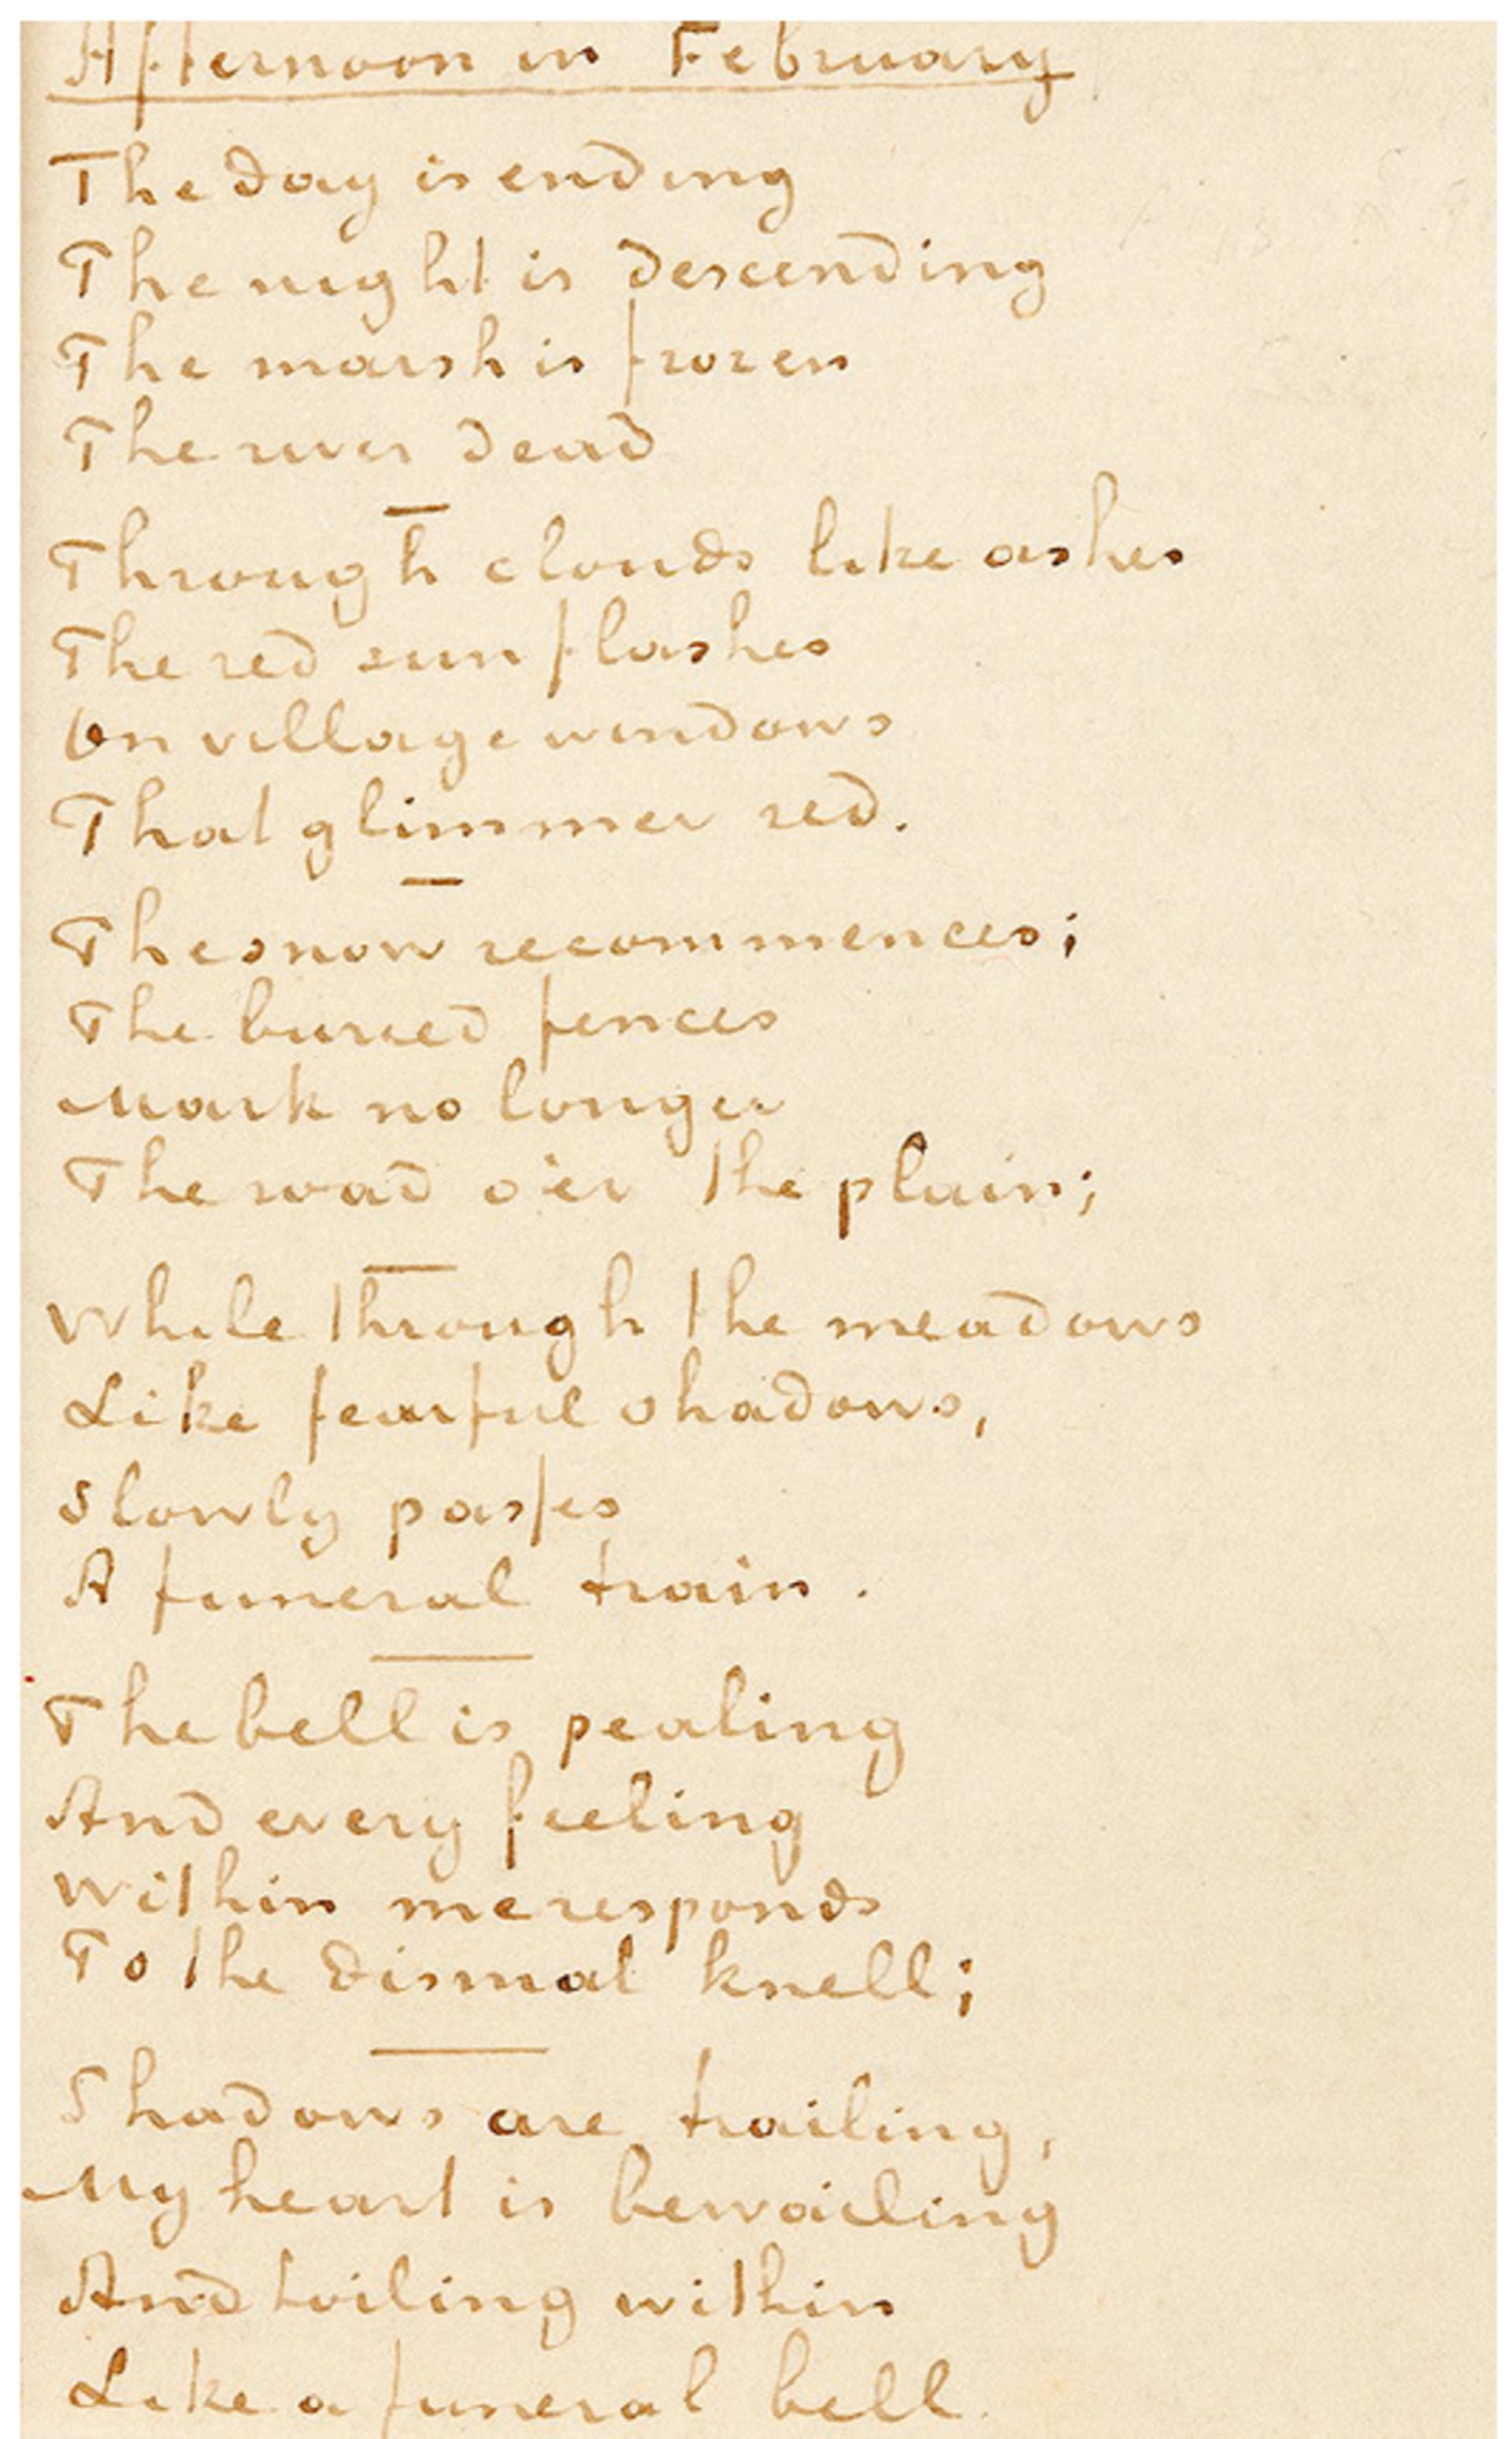 Afternoon in February
The day is ending
The night is descending
The marsh is frozen
The river dead
Through clouds like ashes
The red sun flashes
On village windows
That glimmer red.
The snow recommences;
The buried fences
Mark no longer
The road o'er the plain;
While through the meadows
Like fearful shadows,
Slowly passes
A funeral train.
The bell is pealing
And every feeling
Within me responds
To the dismal knell;
Shadows are trailing,
My heart is bewailing
And toiling within
Like a funeral bell.